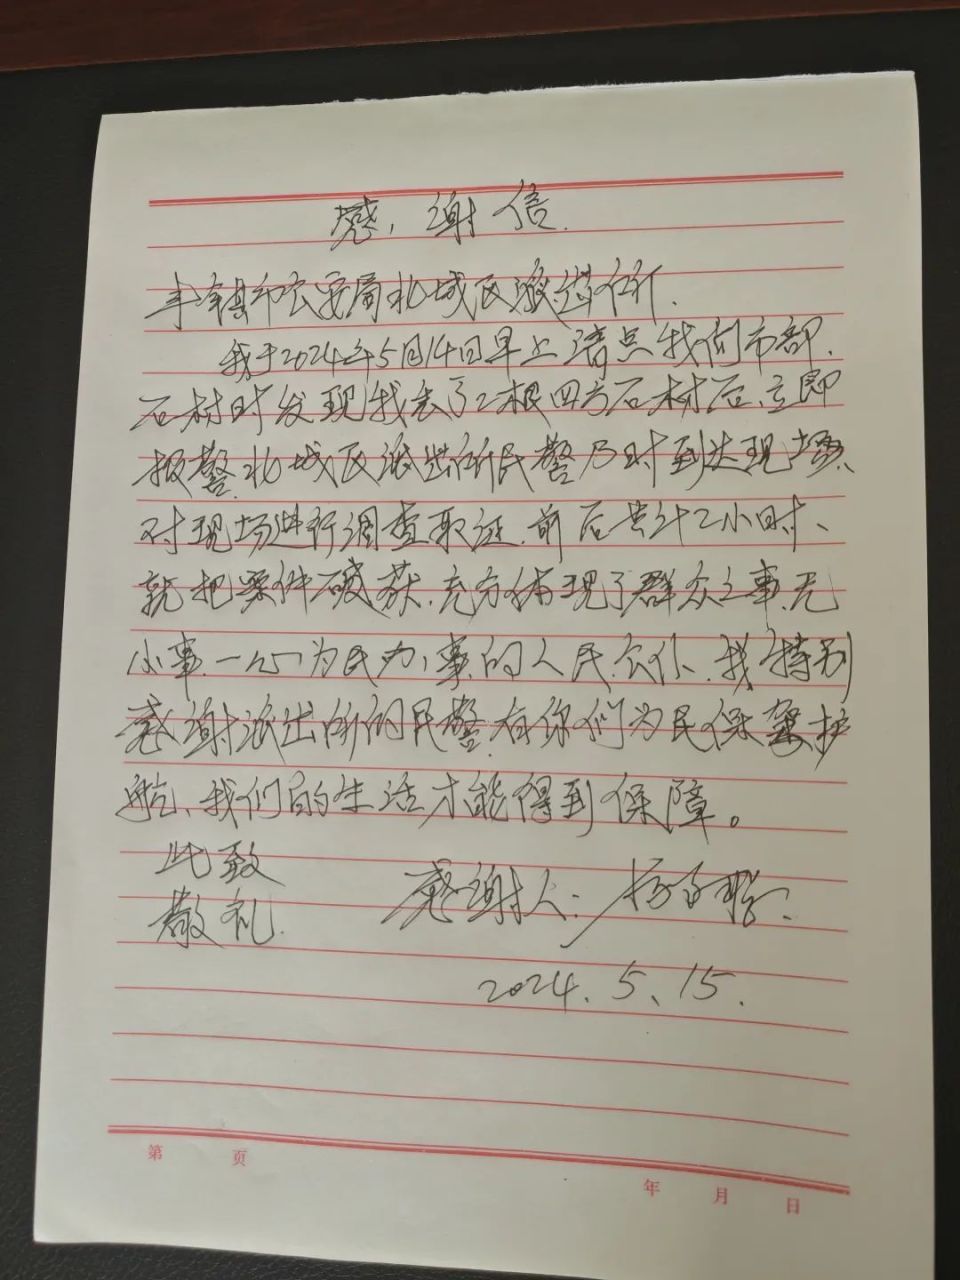 感谢信.
丰镇市公安局北城区派出所.
我于2024年5月14日早上清点我们市部.
石材时发现我丢了2根四方石材后.立即
报警.北城区派出所民警及时到达现场、
对现场进行调查取证.前后共计2小时、
就把案件破获.充分体现了群众之事无
小事.一心为民办事的人民公仆.我特别
感谢派出所的民警.有你们为民保驾护
航、我们的生活才能得到保障。
此致
敬礼. 感谢人:
2024.5.15.
第 页
年 月 日